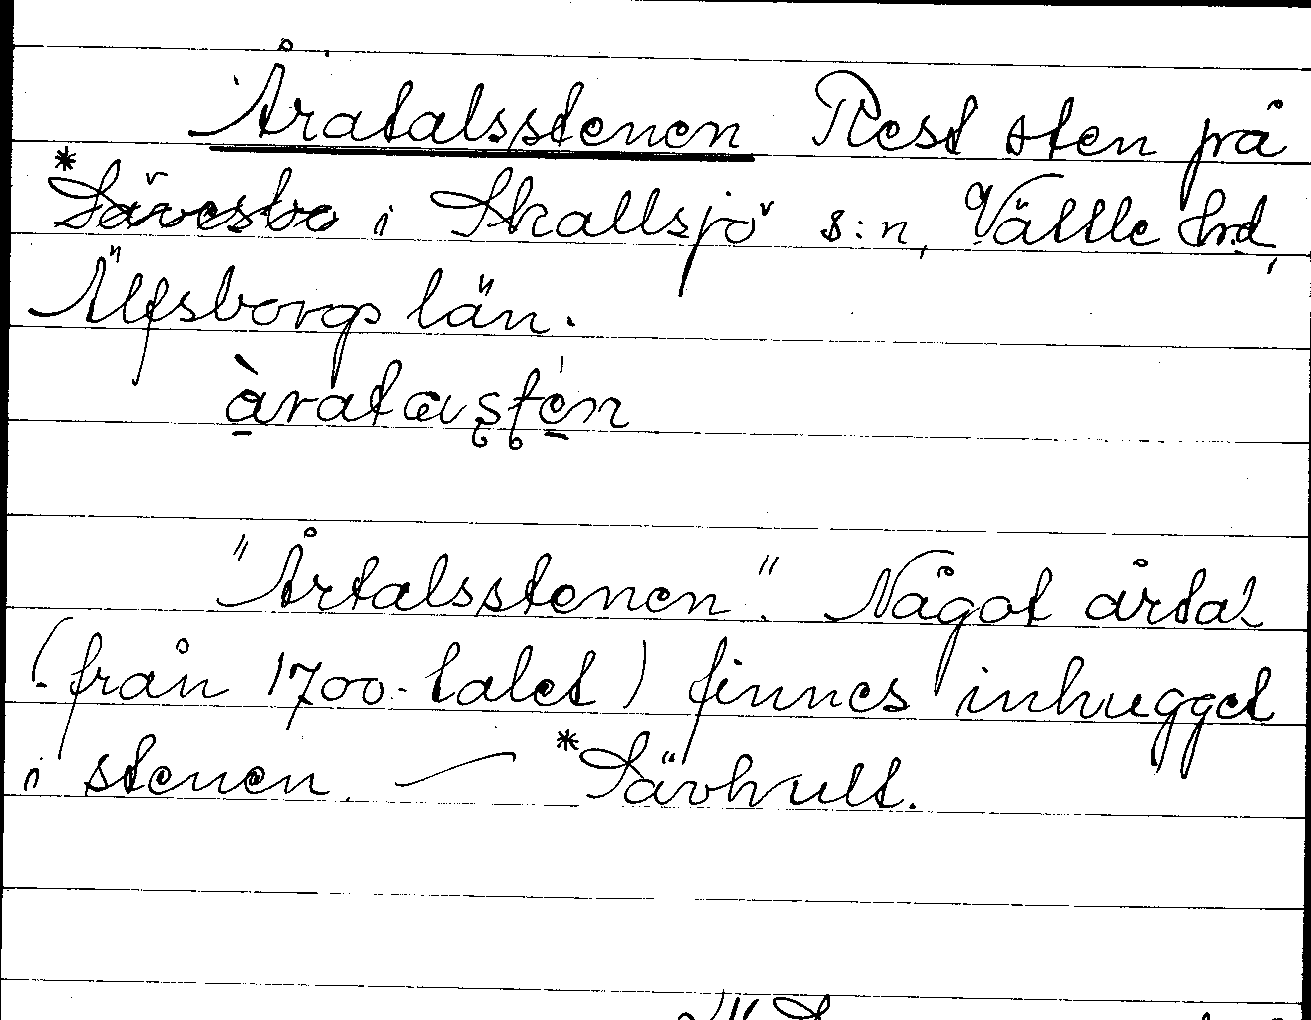 Åratalsstenen Rest sten på
*Sävesbo i Skallsjö s:n, Vättle hrd,
Älfsborgs län.
"Årtalsstenen". Något årtal
(från 1700-talet) finnes inhugget
i stenen. — *Sävhult.